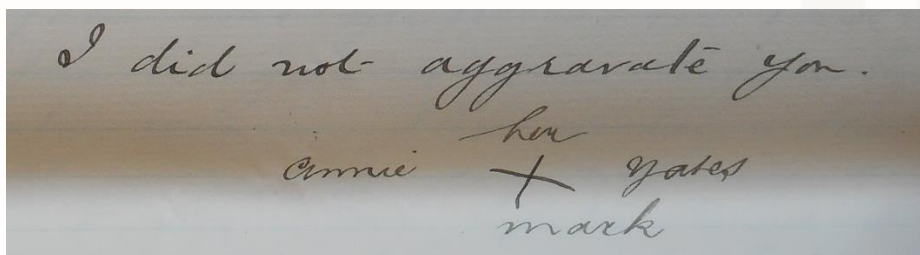 I did not aggravate you.
her
Annie X Yates
mark